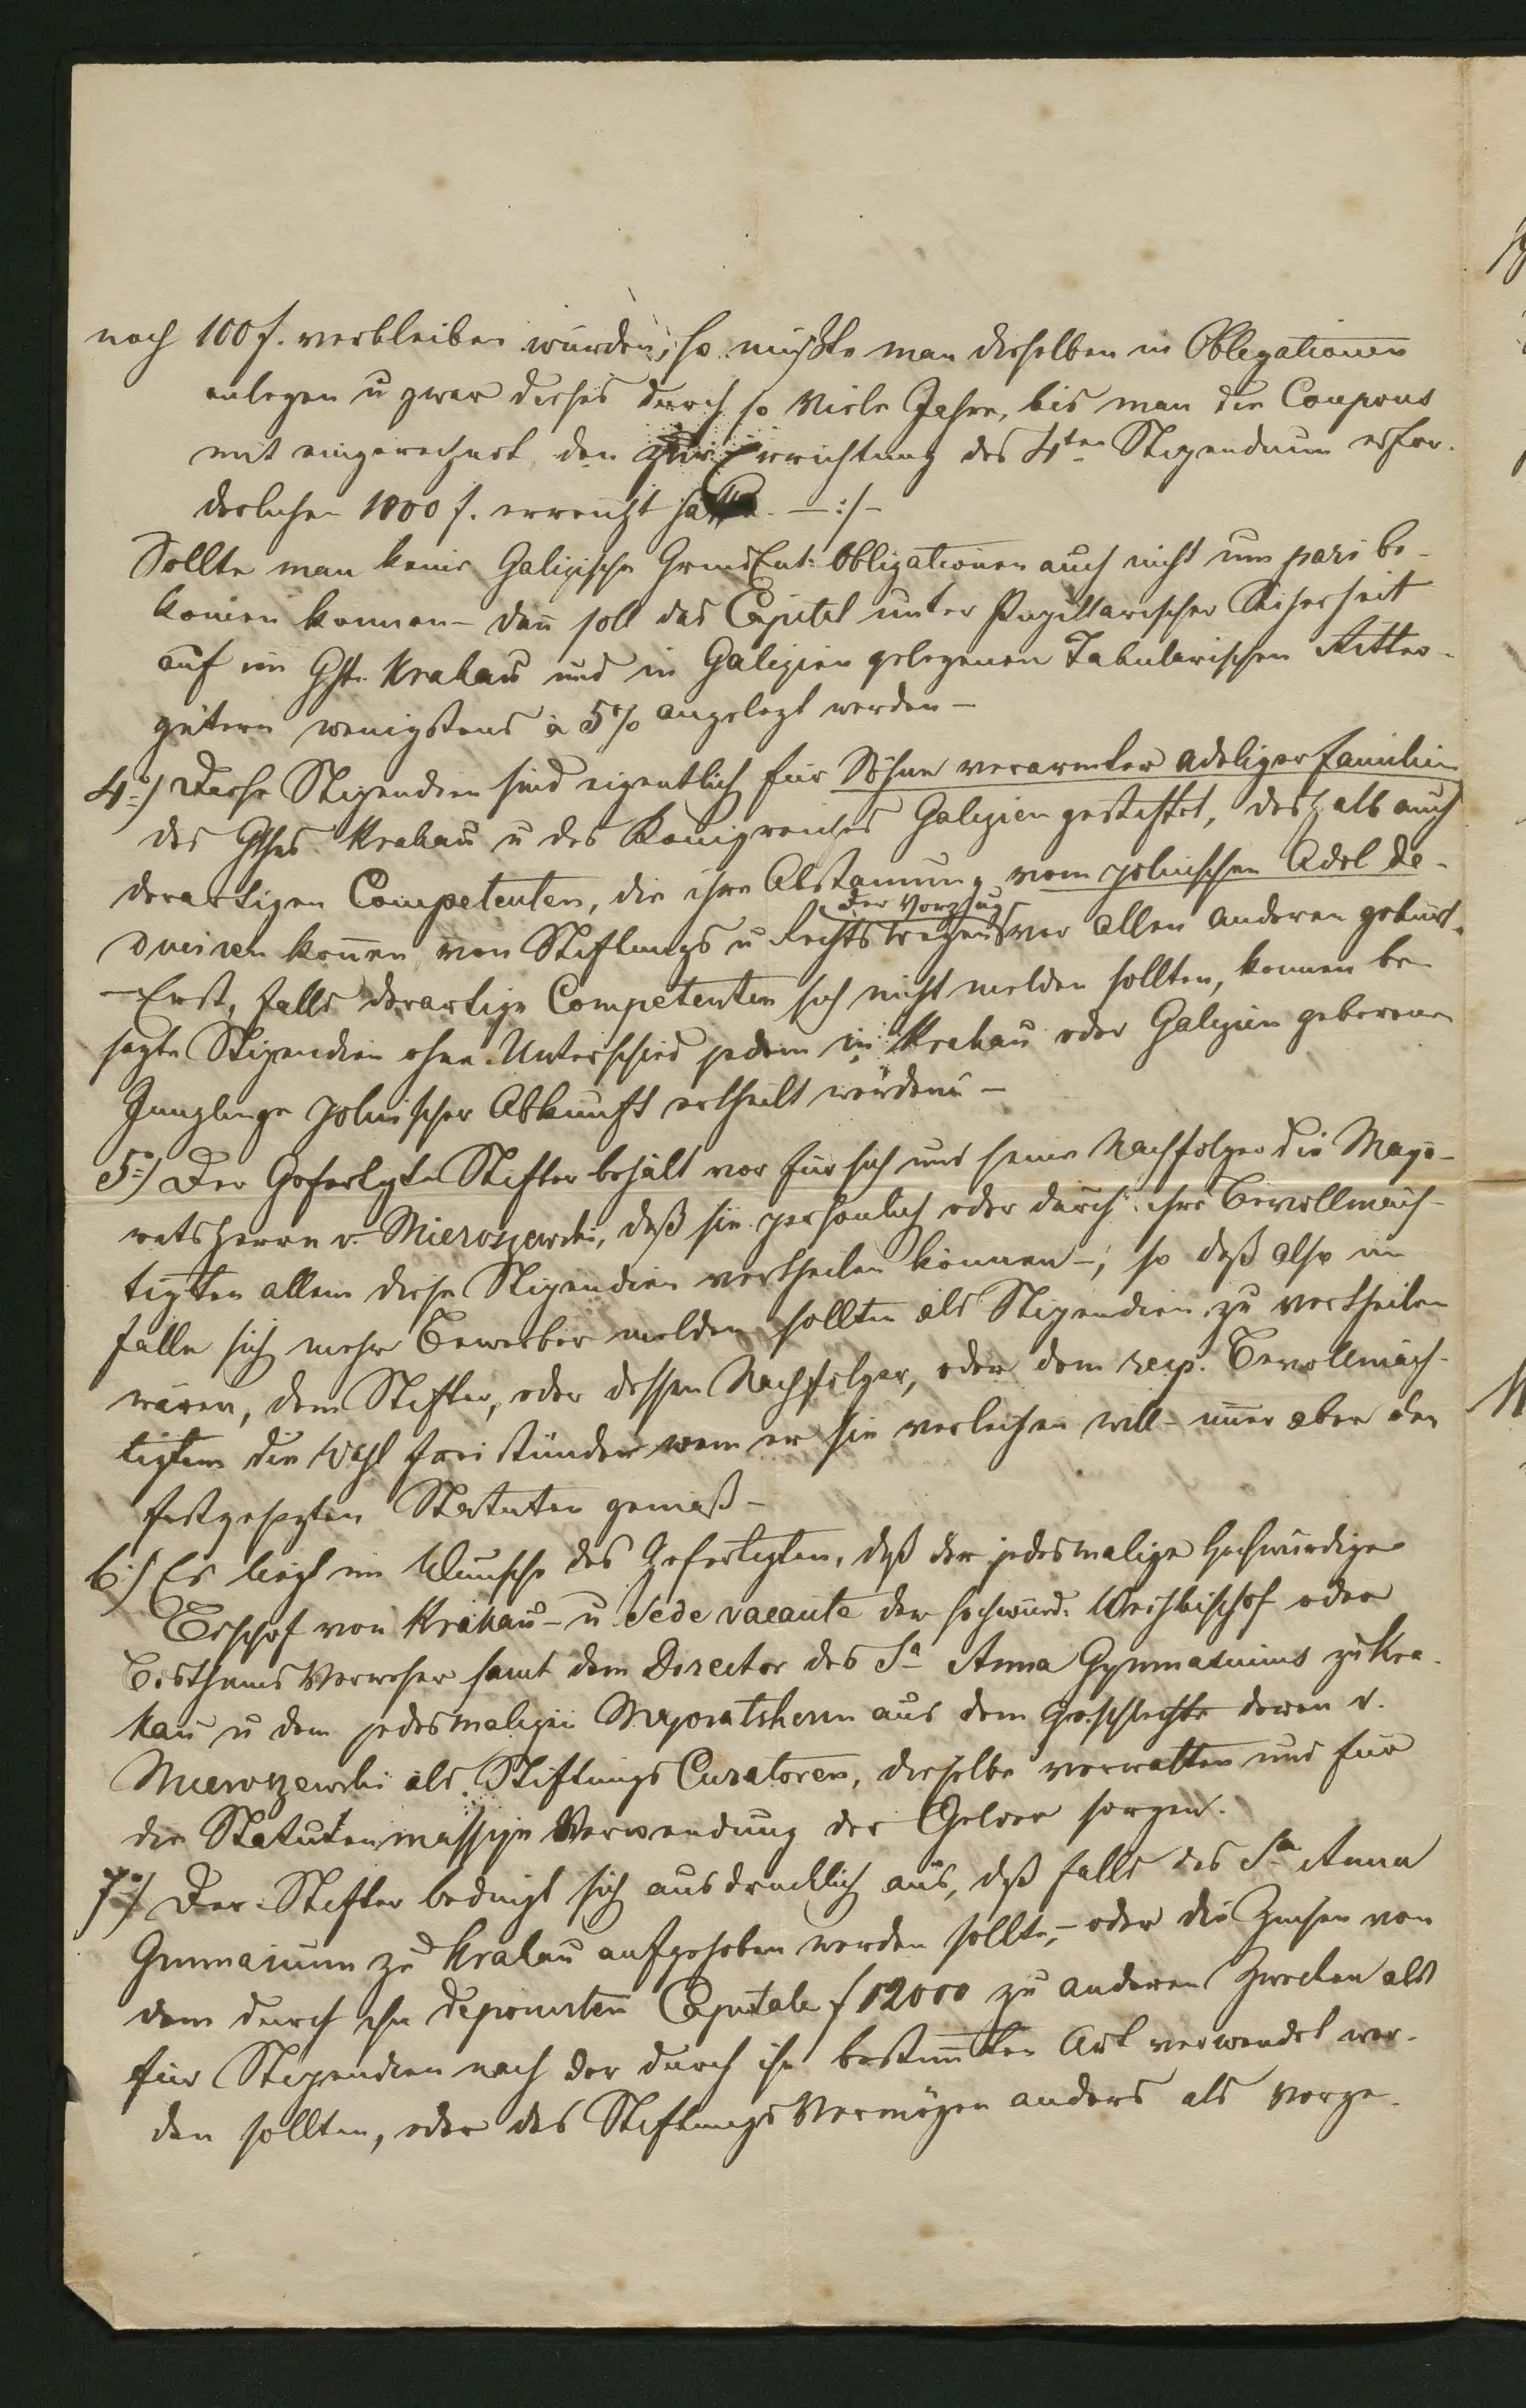 noch 100 f. verbleiben würden, so müßte man dieselben in Obligationen
anlegen u zwar dieses durch so viele Jahre, bis man die Coupons
mit eingerechnet, den zur Errichtung des 4ten Stipendium erfor-
derlichen 1000 f. erreicht hätte. —:/—
Sollte man keine Galizische GrundEnt: Obligationen auch nicht um pari be-
komen konnen – dan soll das Capital unter Pupillarischer Sicherheit
auf im Ghth. Krakau und in Galizien gelegenen Tabularischen Ritter-
gütern wenigstens à 5% angelegt werden –
4o/ Diese Stipendien sind eigentlich für Söhne verarmter adeliger Familien
des Ghths. Krakau u des Königreiches Galizien gestiftet, deshalb auch
derartigen Competenten, die ihre Abstamung vom polnischen Adel de-
der Vorzug
duciren konen von Stiftungs u Rechtswegens vor allen anderen gebürt.
– Erst, falls derartige Competenten sich nicht melden sollten, konnen be-
sagte Stipendien ohne Unterschied jedem in Krakau oder Galizien geborenen
Junglinge polnischer Abkunft ertheilt werden –
5o/ Der Gefertigte Stifter behält vor für sich und seine Nachfolger die Majo-
ratsherrn v. Mieroszewski, daß sie persönlich oder durch ihre Bevollmäch-
tigten allein diese Stipendien vertheilen können –, so daß also im
Falle sich mehr Bewerber melden sollten als Stipendien zu vertheilen
wären, dem Stifter, oder dessen Nachfolger, oder dem resp. Bevollmäch-
tigten die Wahl freistünde wem er sie verleihen will – imer aber den
festgesezten Statuten gemäß –
6o/ Es liegt im Wunsche des Gefertigten, daß der jedesmalige Hochwürdige
Bischof von Krakau – u Sede vacante der hochwürd. Weihbischof oder
Bisthums Verweser samt dem Director des Sa Anna Gymnasiums zu Kra-
kau u dem jedesmaligen Majoratsherrn aus dem Geschlechte derer v.
Mieroszewski als Stiftungs Curatoren, dieselbe verwalten und für
die Statutenmässige Verwendung der Gelder sorgen.
7o/ Der Stifter bedingt sich ausdrucklich aus, daß falls das Sa Anna
Gymnasium zu Krakau aufgehoben werden sollte, – oder die Zinsen von
dem durch ihn deponirten Capitale f 12000 zu anderen Zwecken als
für Stipendien nach der durch ihn bestimten Art verwendet wer-
den sollten, oder das Stiftungs Vermögen anders als vorge-